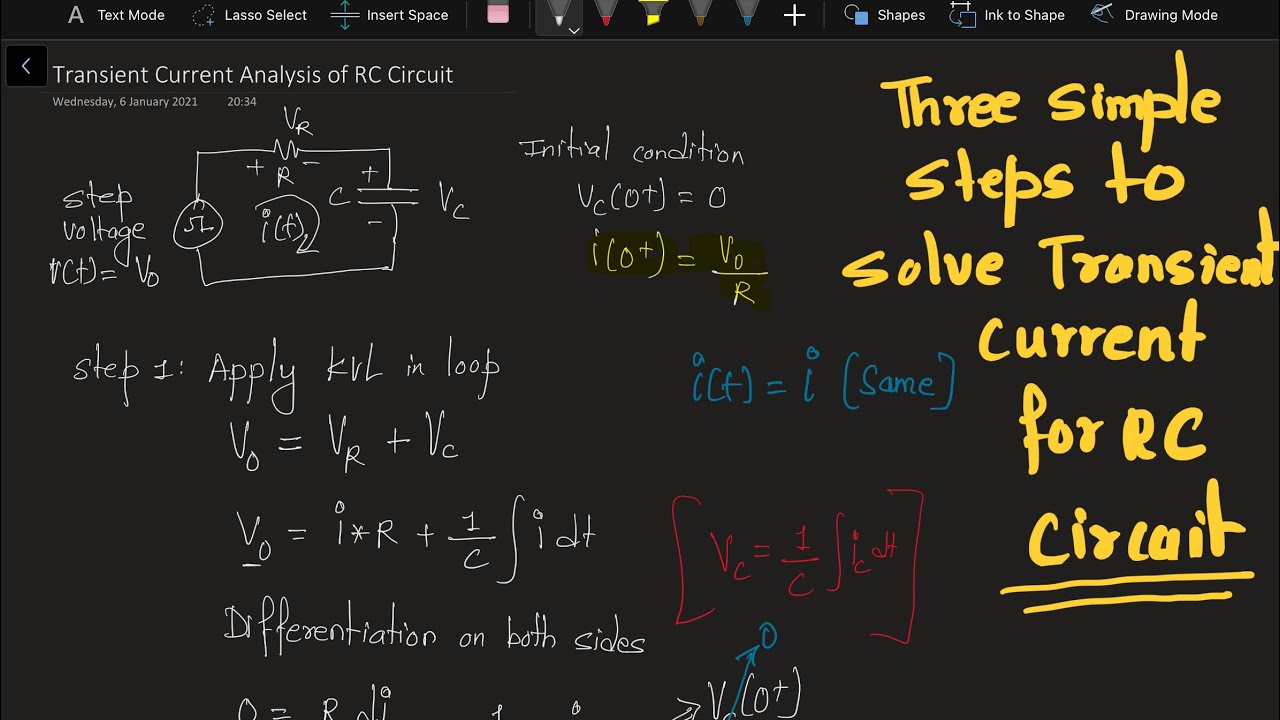 Text Mode
Lasso Select
Insert Space
Shapes
Ink to Shape
Drawing Mode
Transient Current Analysis of RC Circuit
Wednesday, 6 January 2021 20:34
V_R
+ -
R
step
voltage
v(t) = V_0
i(t)
C
+
-
V_C
Initial condition
V_C(0+) = 0
i(0+) = V_0/R
Three simple
steps to
solve Transient
current
for RC
circuit
step 1: Apply KVL in loop
i(t) = i [same]
V_0 = V_R + V_C
V_0 = i*R + 1/C ∫ i dt
[V_C = 1/C ∫ i_C dt]
Differentiation on both sides
0
V_C(0+)
0 = R di
1 i